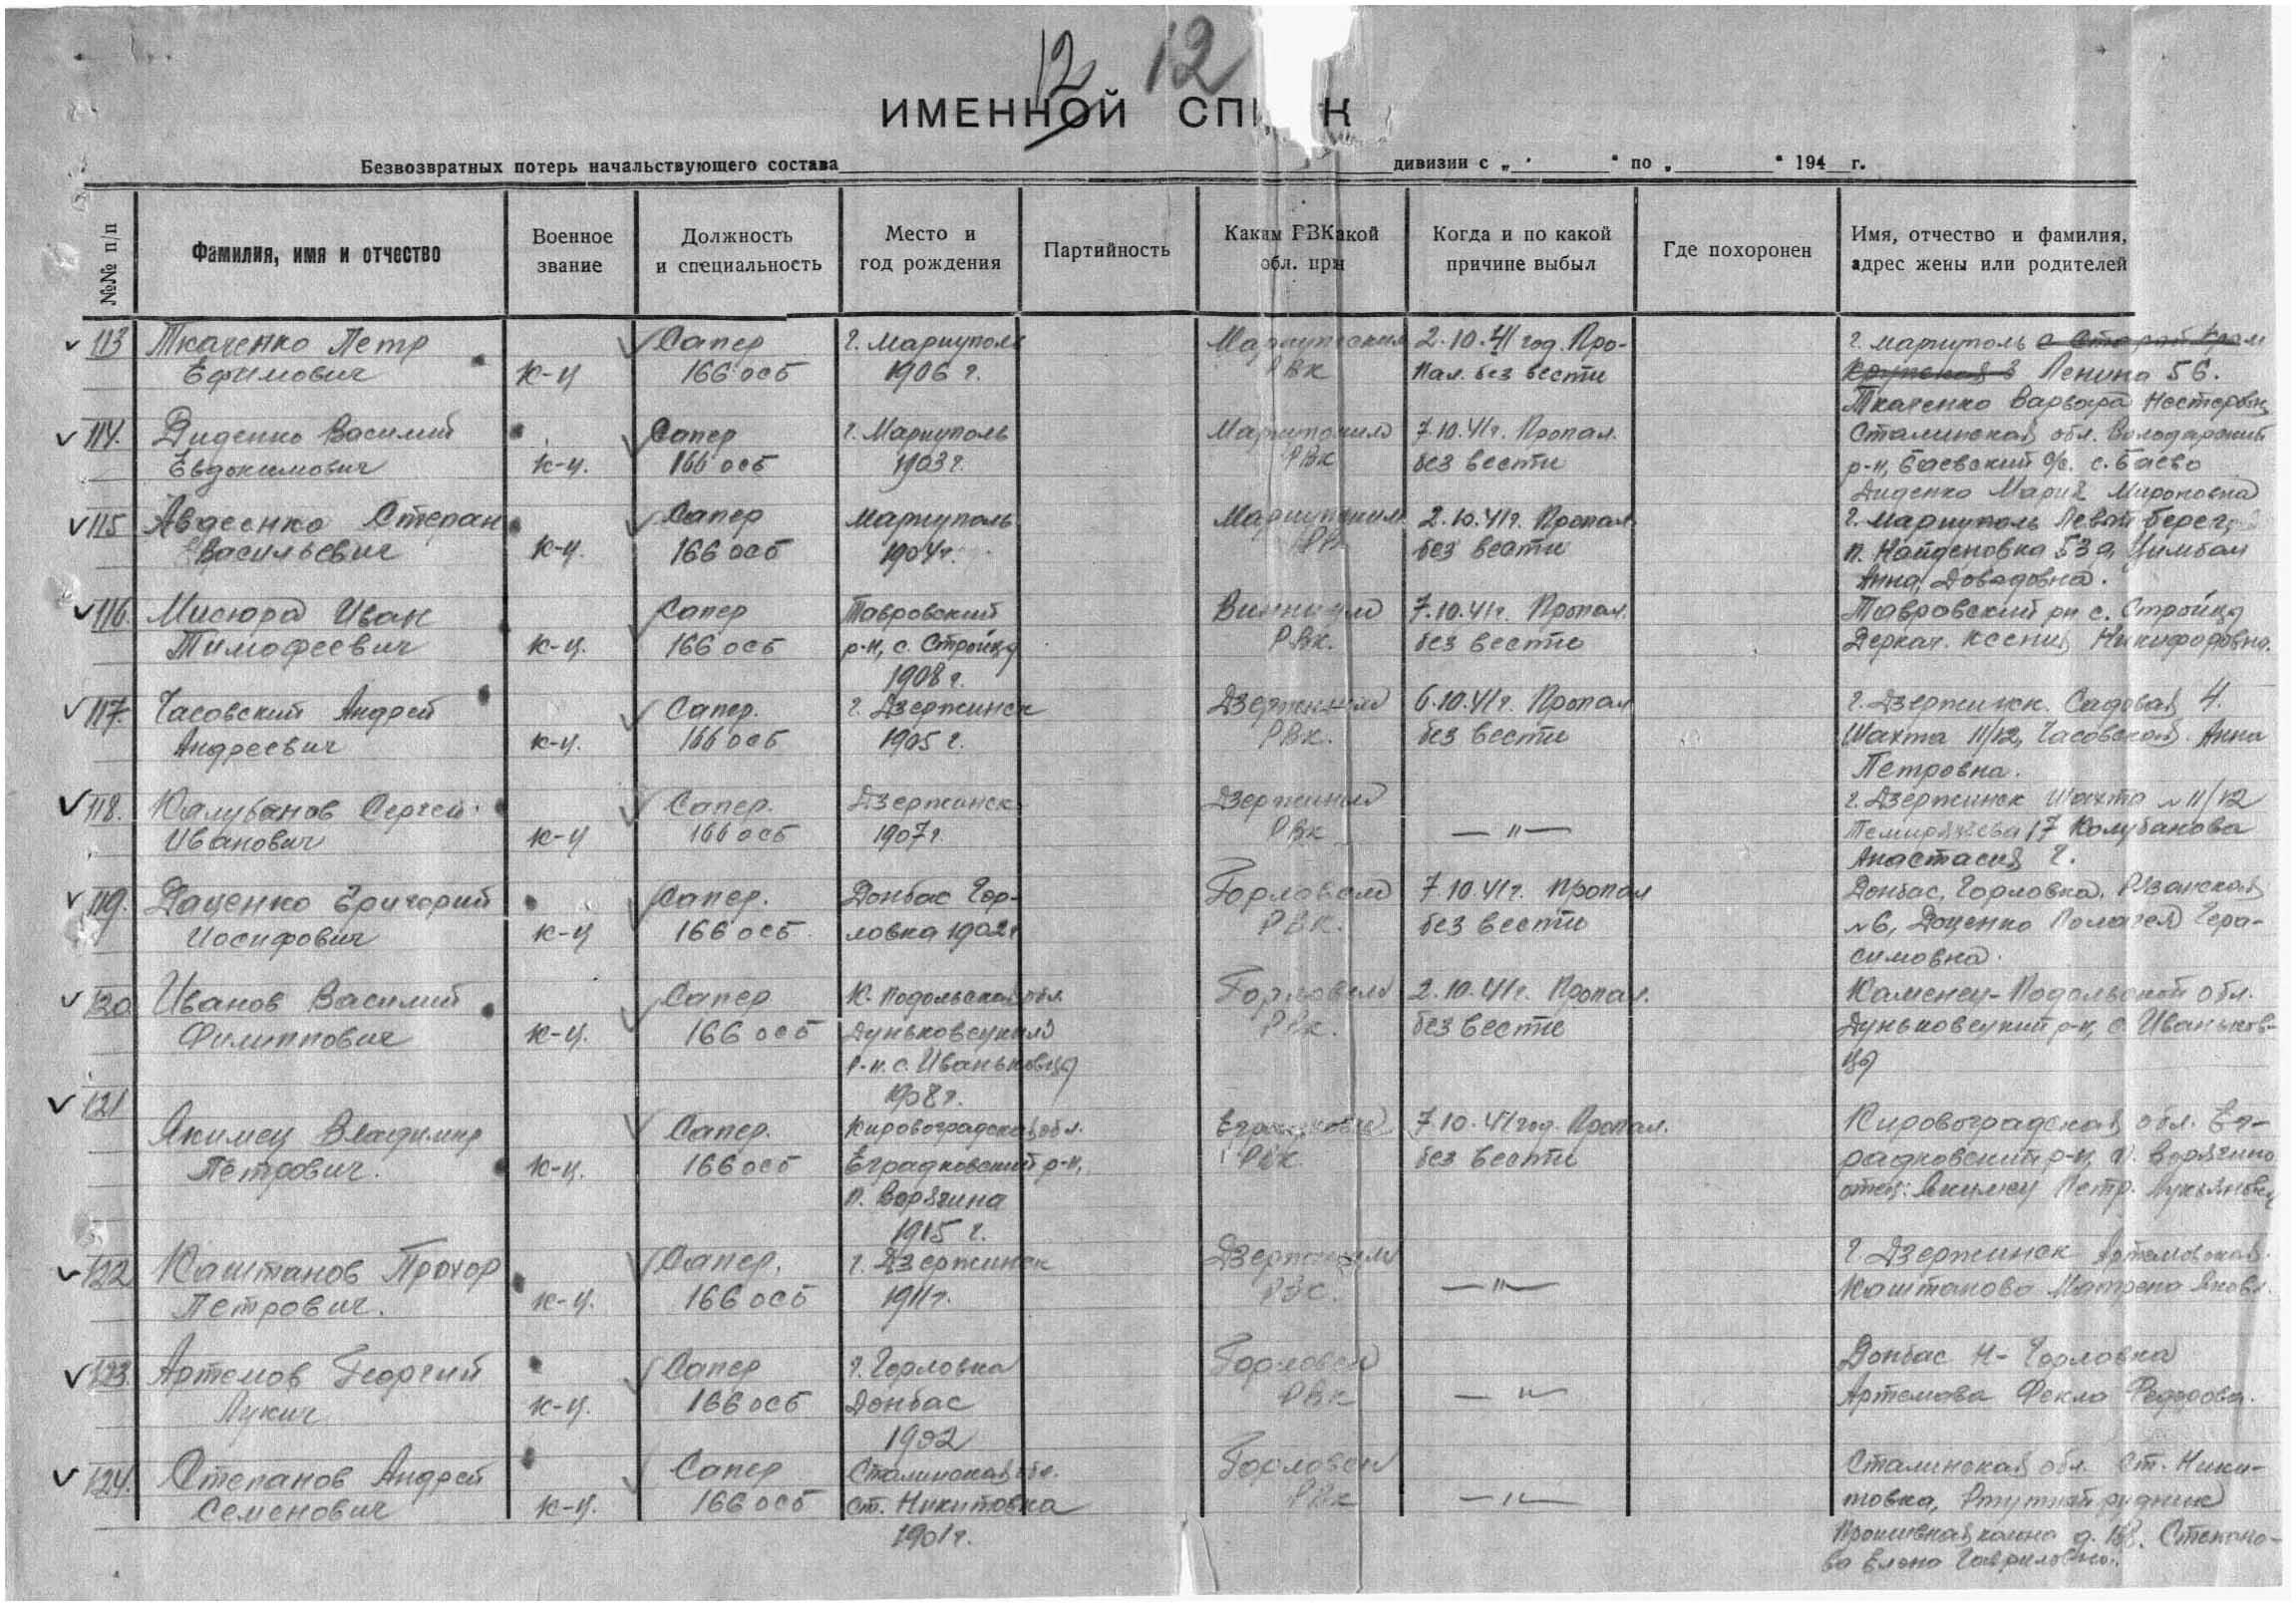 12 12
ИМЕННОЙ СПИ К
Безвозвратных потерь начальствующего состава дивизии с „ " по „ " 194 г.
№№ п/п
Фамилия, имя и отчество
Военное
звание
Должность
и специальность
Место и
год рождения
Партийность
Каким РВК какой
обл. при
Когда и по какой
причине выбыл
Где похоронен
Имя, отчество и фамилия,
адрес жены или родителей
113 Ткаченко Петр Сапер г. Мариуполь Мариупольским 2.10.41 год. Про- г. Мариуполь с Старой Крам
Ефимович к-ц 166 осб 1906 г. РВК пал. без вести Ленина 56.
Ткаченко Варвара Нестеровн
114. Диденко Василий Сапер г. Мариуполь 7.10.41г. Пропал. Сталинская обл. Володарский
Евдокимович к-ц. 166 осб 1903г. РВК без вести р-н, Баевский с/с. с. Баево
Диденко Мария Мироновна
115 Авдеенко Степан Сапер Мариуполь 2.10.41г. Пропал г. Мариуполь Левой берег,
Васильевич к-ц. 166 осб 1904г. РВ без вести п. Найденовка 53 а, Цимбал
Анна Довадовна.
116. Мисюра Иван Сапер Тавровский 7.10.41г. Пропал. Тавровский рн с. Стройцы
Тимофеевич к-ц. 166 осб р-н, с. Стройцы РВК. без вести Деркач. Ксения Никифоровна.
1908 г.
117. Часовский Андрей Сапер. г. Дзержинск 6.10.41г. Пропал г. Дзержинск. Садовая 4.
Андреевич к-ц. 166 осб 1905 г. РВК. без вести Шахта 11/12, Часовская. Анна
Петровна.
118. Калубанов Сергей Сапер. Дзержинск г. Дзержинск Шахта №11/12
Иванович к-ц 166 осб 1907г. РВК — " — 17 Колубанова
Анастасия Г.
119. Даценко Григорий Сапер. Донбас Гор- Горловски 7.10.41г. Пропал Донбас, Горловка. Рязанская
Иосифович к-ц 166 осб ловка 1902г РВК. без вести №6, Даценко Гера-
симовна.
120 Иванов Василий Сапер К. Подольская обл. 2.10.41г. Пропал. Каменец-Подольской обл.
Филиппович к-ц. 166 осб Дуньковецкий РВК. без вести Дуньковецкий р-н, с. Иваньков-
р-н. с. Иваньковцы цы
1908г.
121
Якимец Владимир Сапер. Кировоградская обл. 7.10.41год. Пропал. Кировоградская обл. Ег-
Петрович. к-ц. 166 осб Еградковский р-н, РВК без вести радковский р-н,
п. Ворягина отец: Якимец Петр. Лукьянович
1915 г.
122 Каштанов Прохор Сапер. г. Дзержинск г. Дзержинск Артемовская.
Петрович. к-ц. 166 осб 1911г. — " — Каштанова Матрена Яковл.
123. Артемов Георгий Сапер г. Горловка Донбас Н-Горловка
Лукич к-ц. 166 осб Донбас РВК — " — Артемова Фекла Федорова.
1902
124. Степанов Андрей Сапер Сталинская обл. Сталинская обл. ст. Ники-
Семенович к-ц. 166 осб ст. Никитовка РВК — " — товка, Ртутный рудник
1901г. д. 188. Степано-
ва Елена Гавриловна.